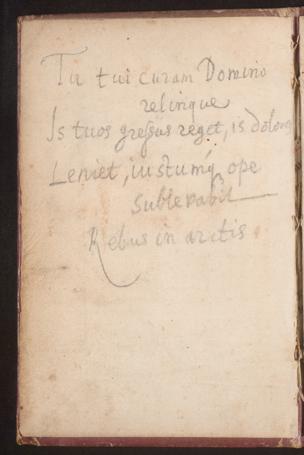 Tu tui curam Domino
relinque
Is tuos gressus reget, is dolores
Leniet, iustumq́ ope
sublevabit
Rebus in arctis